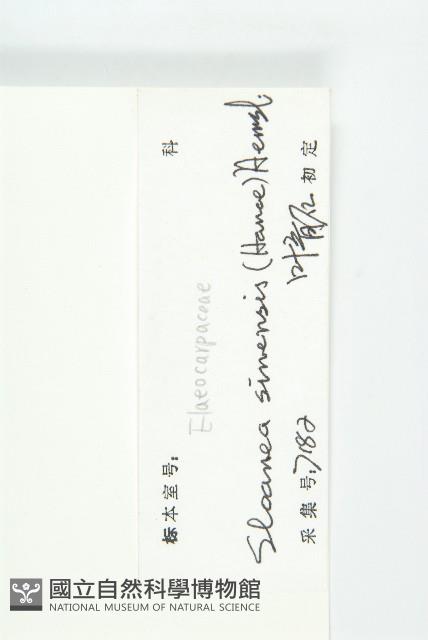 标本室号: 科
Elaeocarpaceae
Sloanea sinensis (Hance) Hemsl.
采集号: 7182 叶 初定
國立自然科學博物館
NATIONAL MUSEUM OF NATURAL SCIENCE